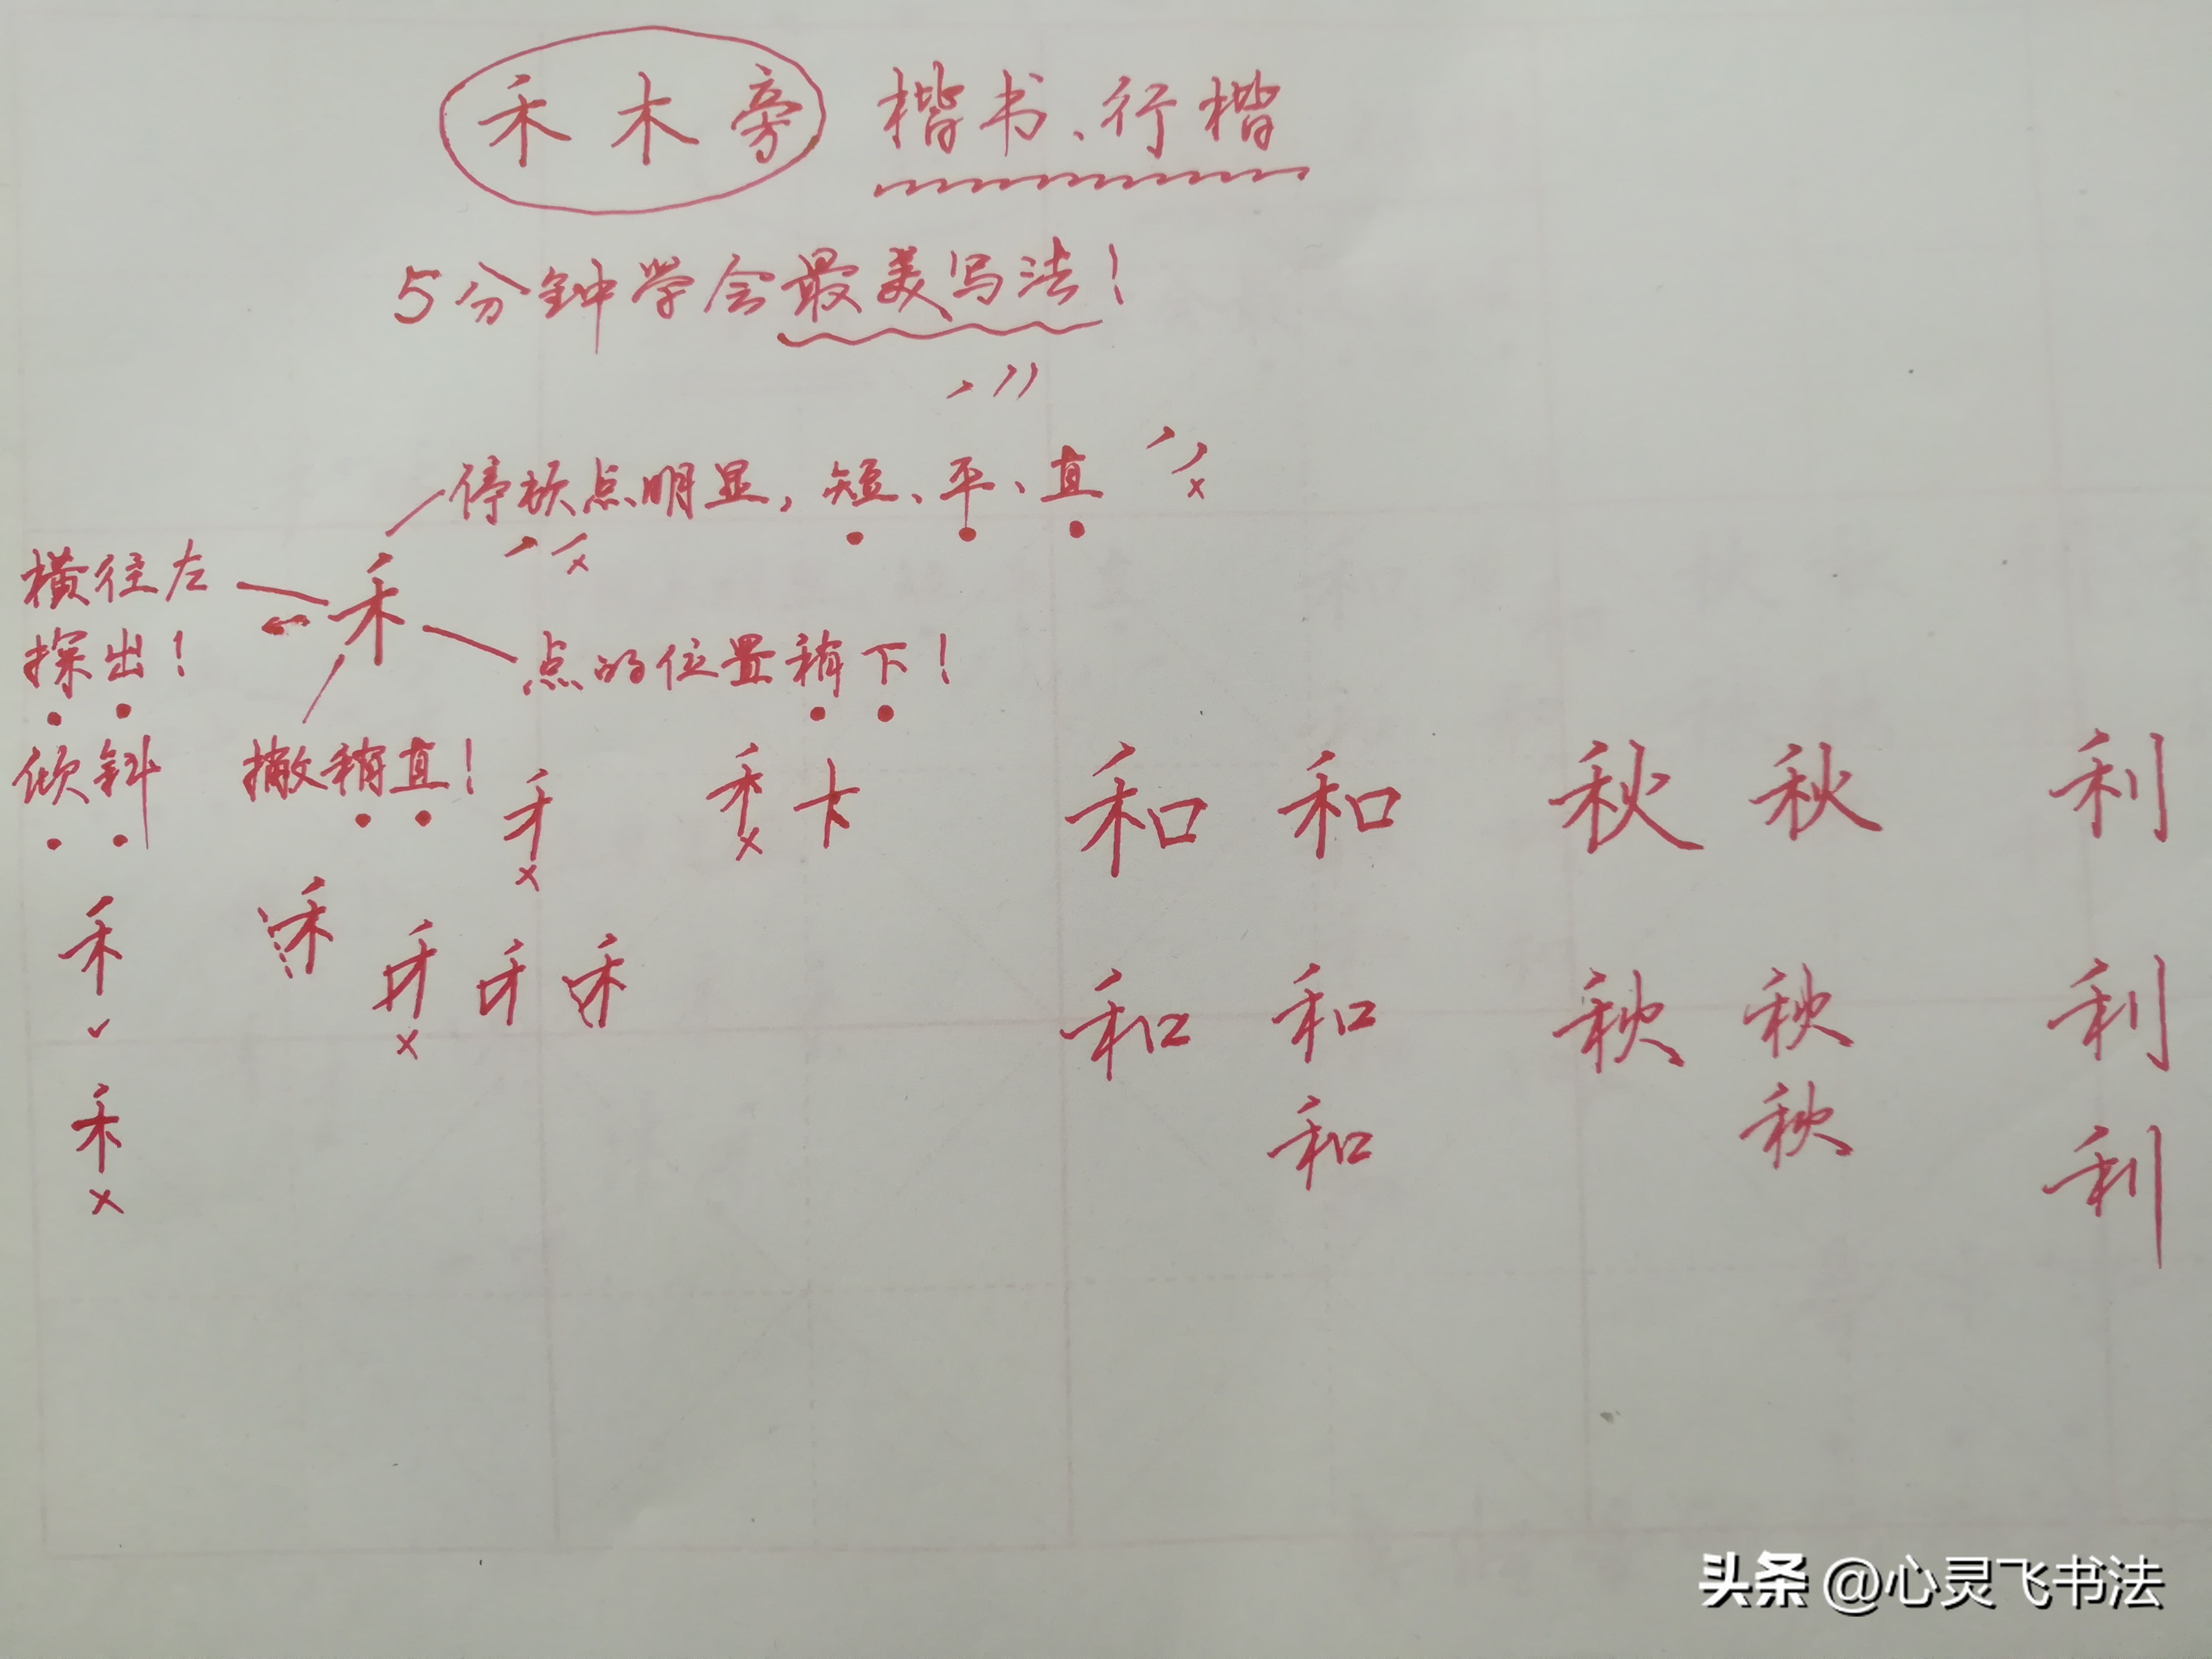 禾木旁 楷书、行楷
5分钟学会最美写法！
停顿点明显，短、平、直
横往左
探出！
倾斜
点的位置稍下！
撇稍直！
禾
和 和 秋 秋 利
和 和 秋 秋 利
和 秋 利
头条 @心灵飞书法